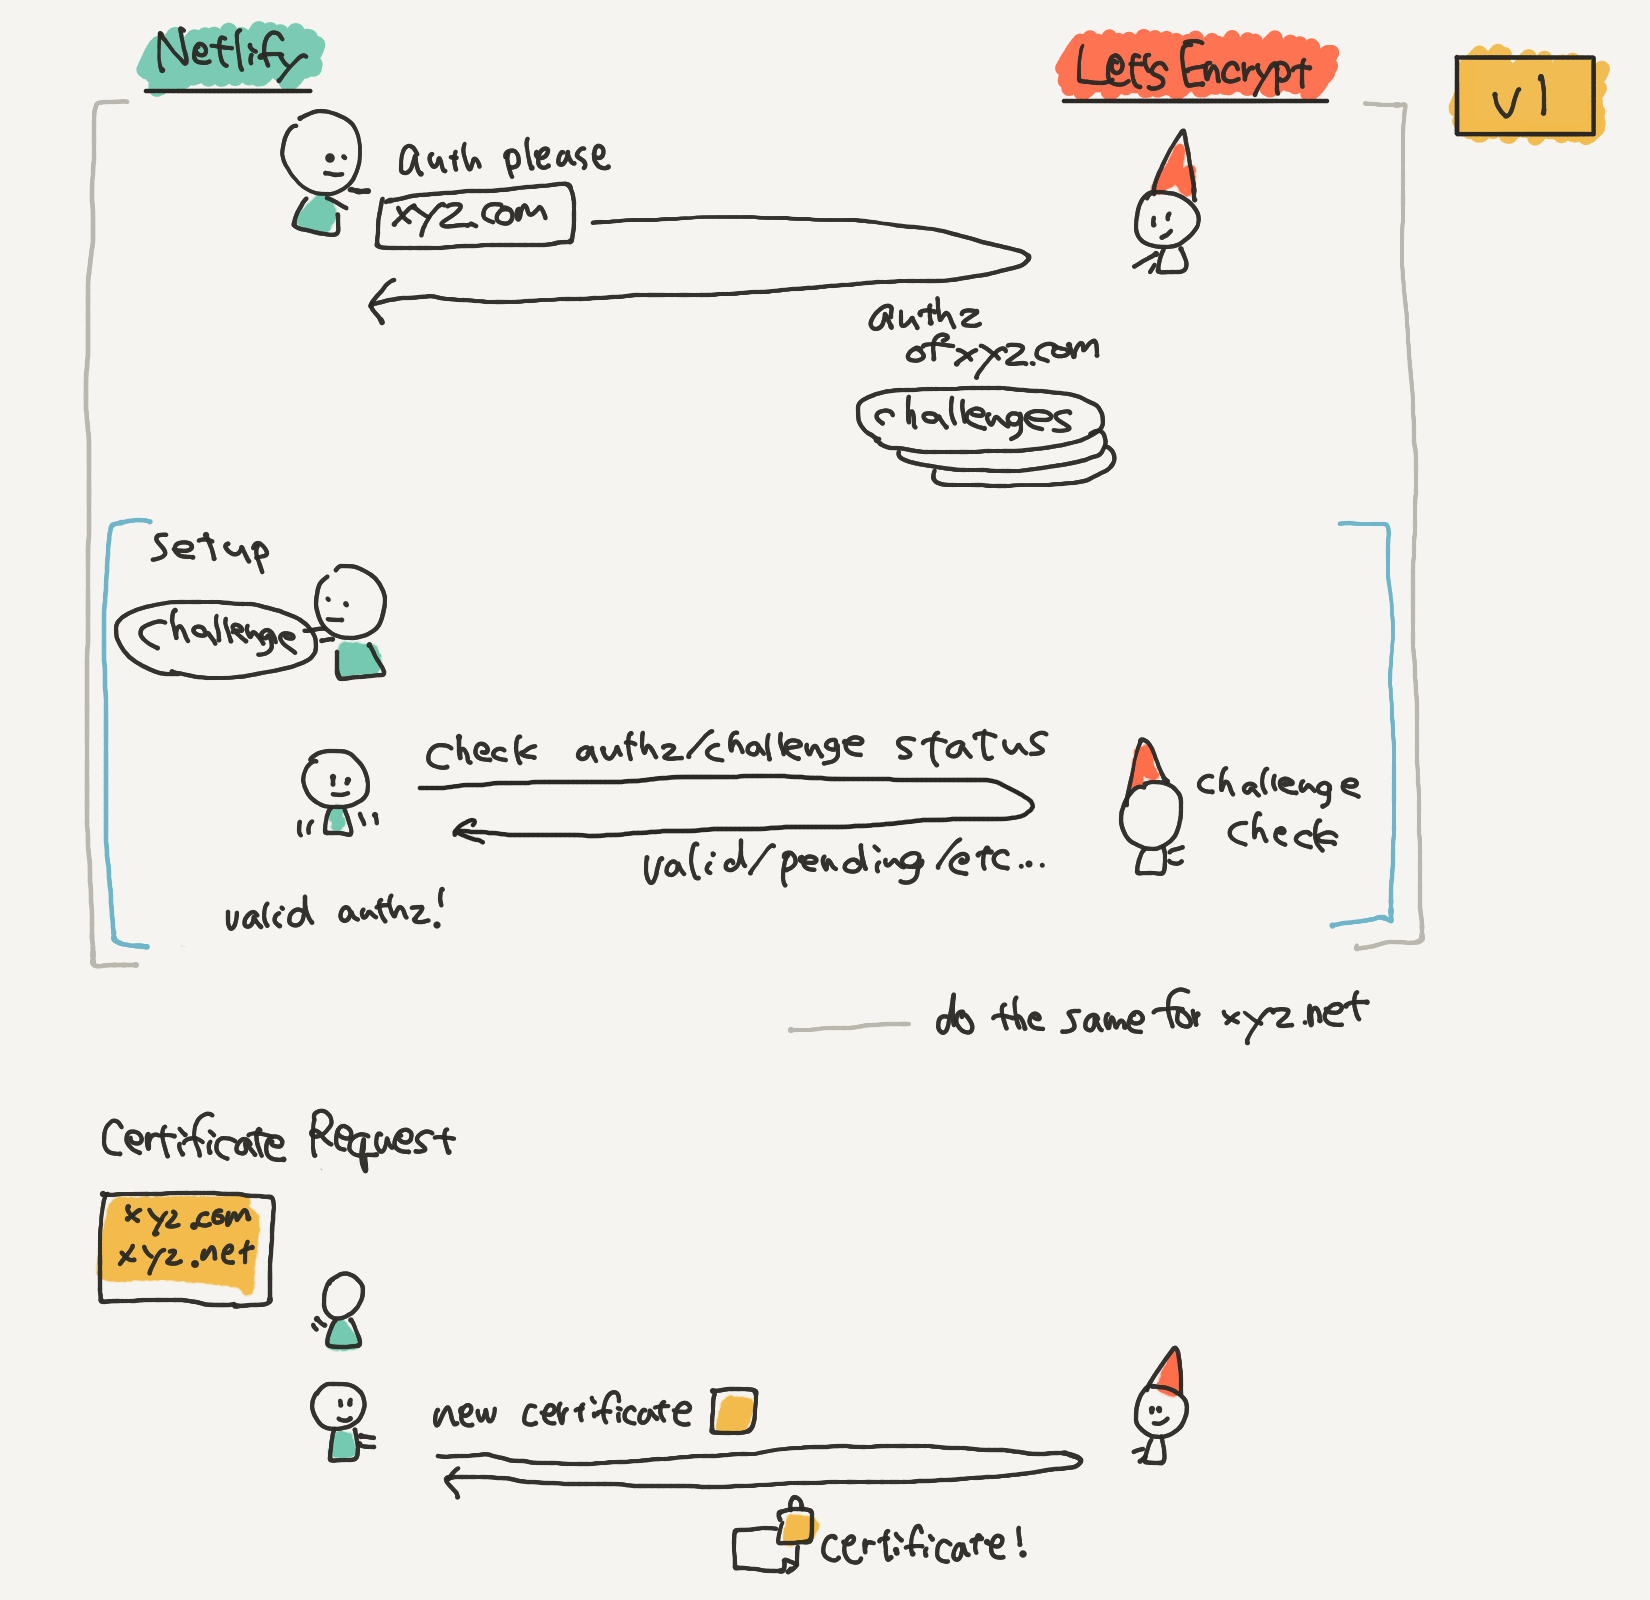 Netlify
Let's Encrypt
v1
auth please
xyz.com
authz
of xyz.com
challenges
setup
challenge
check authz/challenge status
challenge
check
valid/pending/etc...
valid authz!
do the same for xyz.net
Certificate Request
xyz.com
xyz.net
new certificate
certificate!